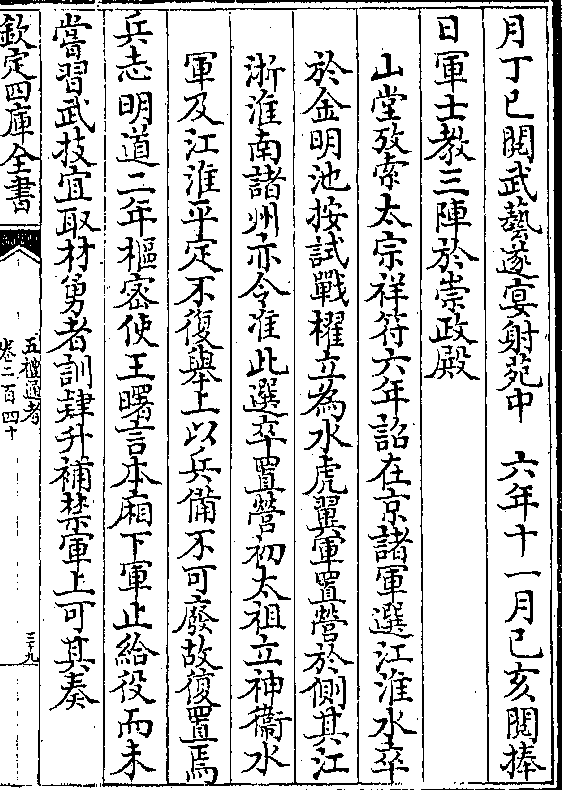 月丁巳閲武藝遂宴射苑中　六年十一月己亥閲捧
日軍士教三陣於崇政殿
山堂攷索太宗祥符六年詔在京諸軍選江淮水卒
於金明池按試戰櫂立為水虎翼軍置營於側其江
浙淮南諸州亦令准此選卒置營初太祖立神衞水
軍及江淮平定不復舉上以兵備不可廢故復置焉
兵志明道二年樞密使王曙言本廂下軍止給役而未
嘗習武技宜取材勇者訓肄升補禁軍上可其奏
欽定四庫全書
五禮通考
卷二百四十
三十九